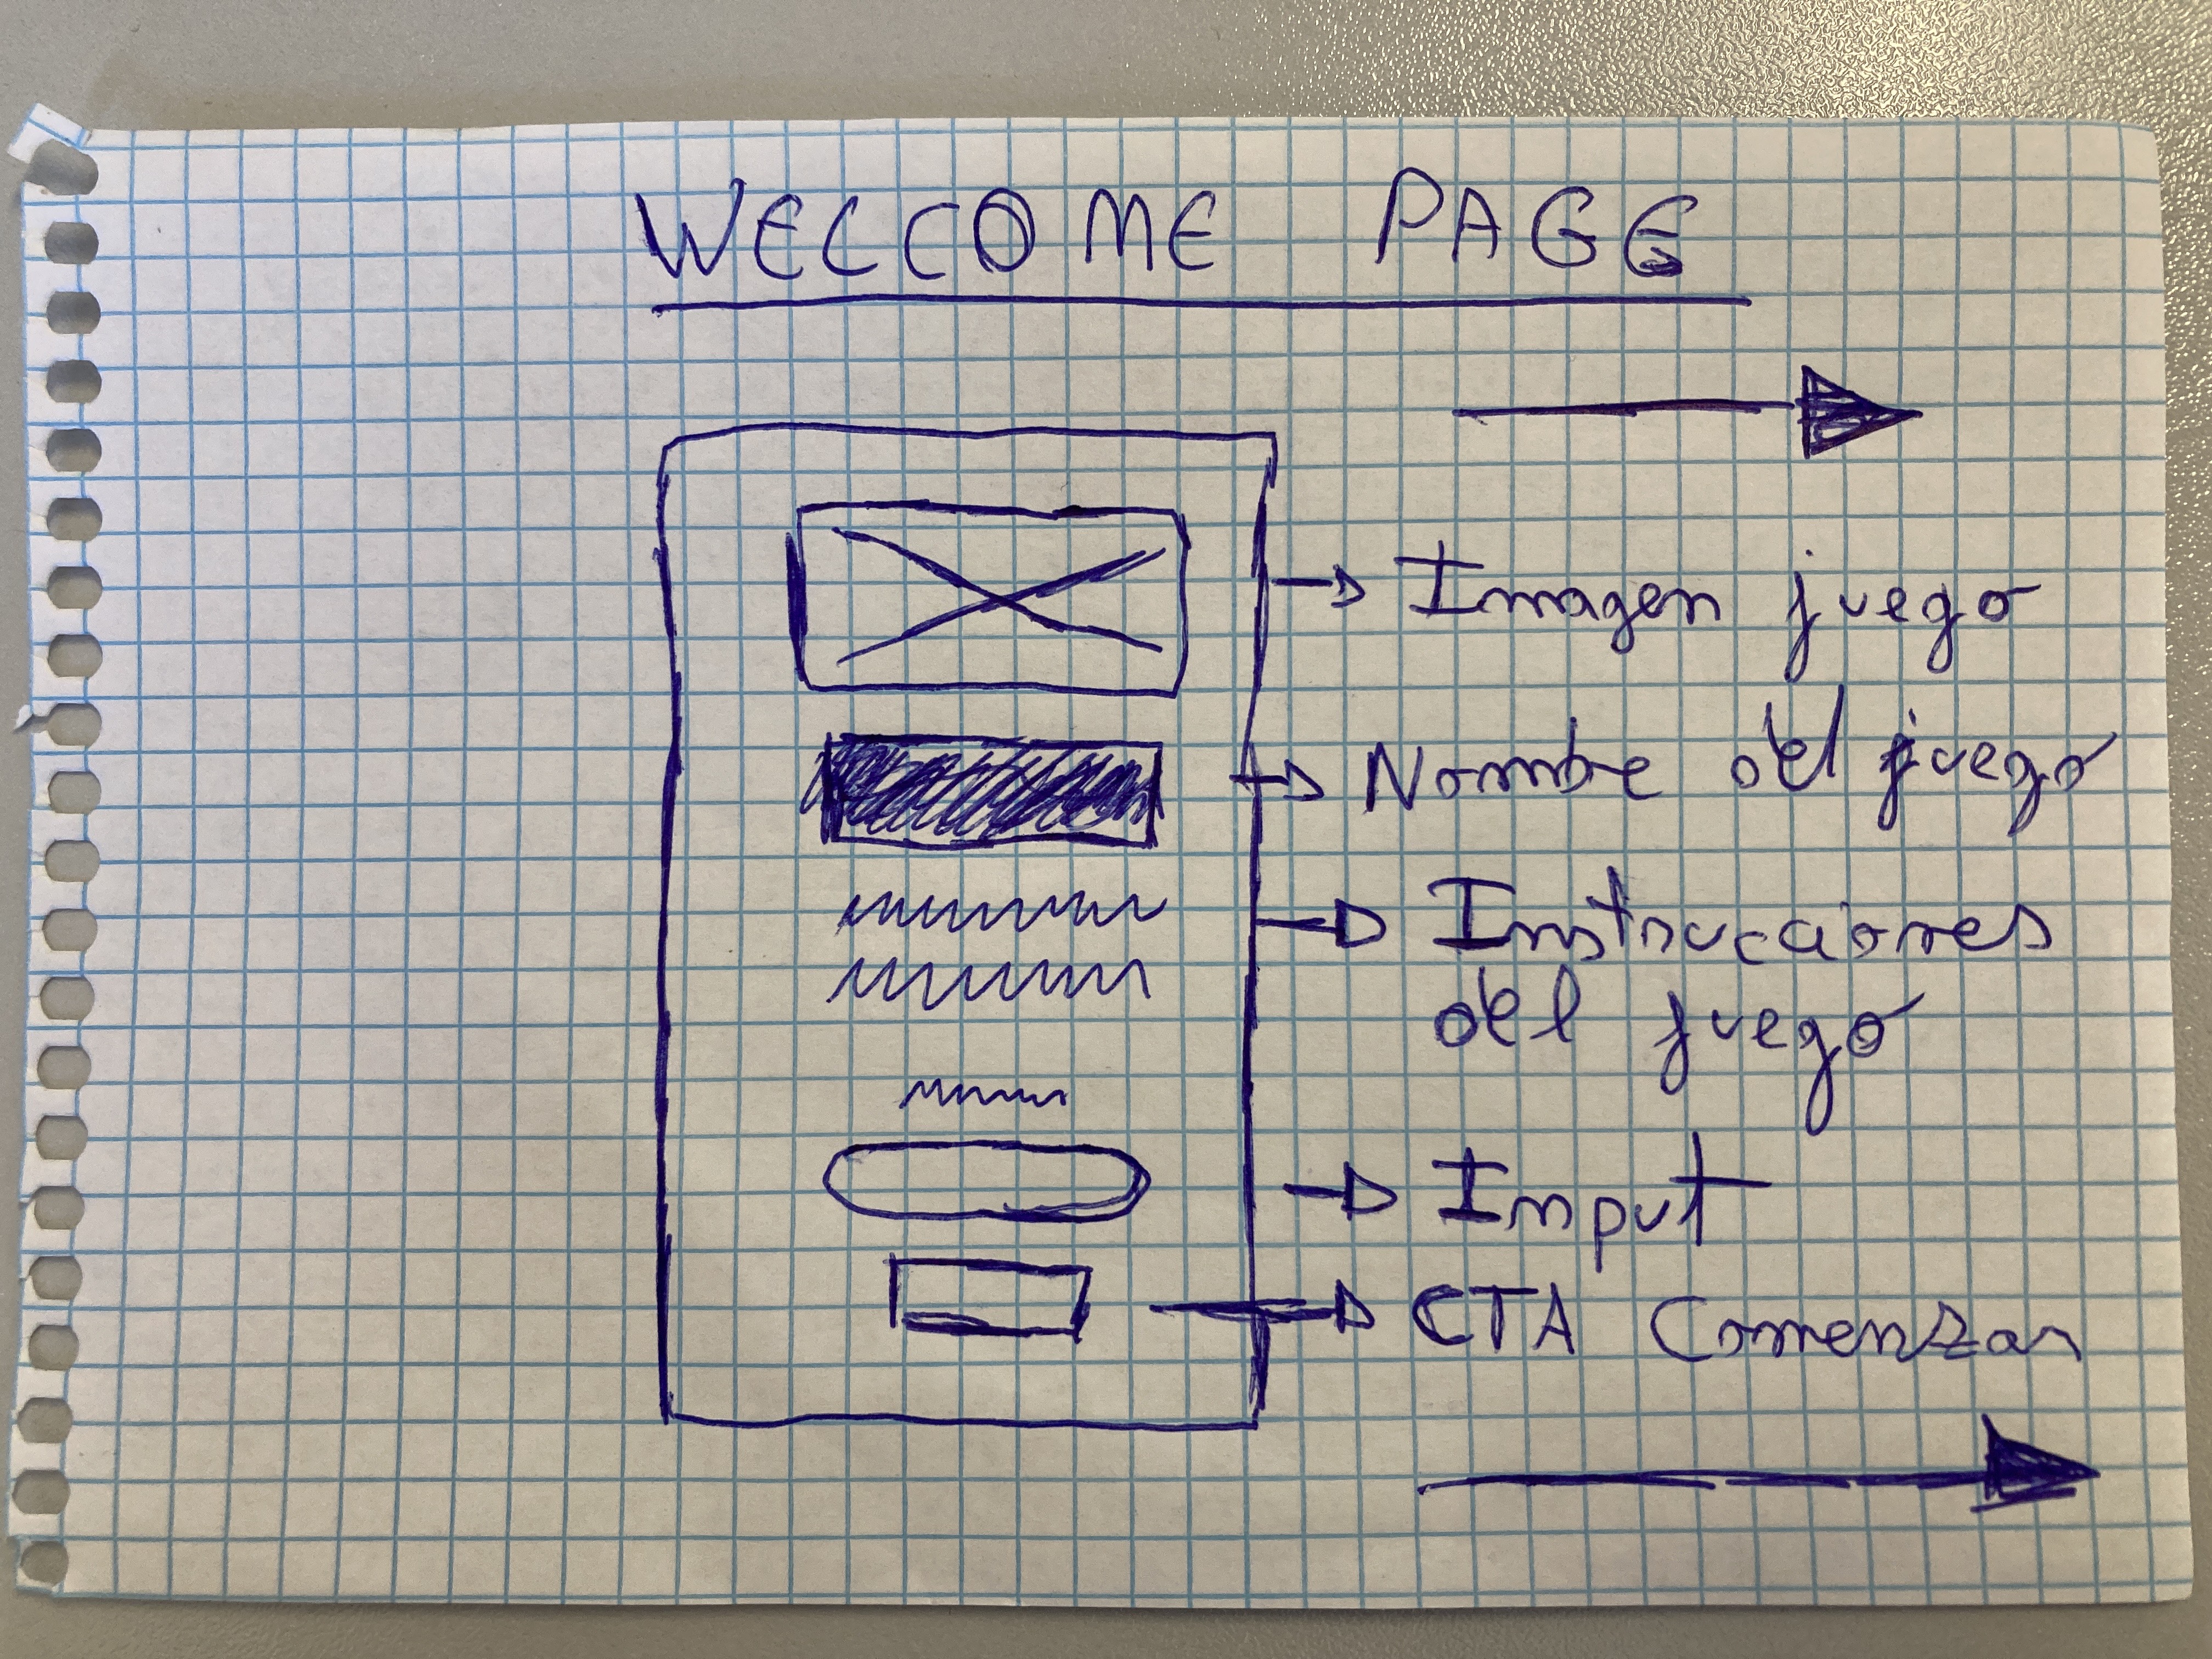 WELCOME PAGE
Imagen juego
Nombe del juego
Instrucciones
del juego
Imput
CTA Comenzar